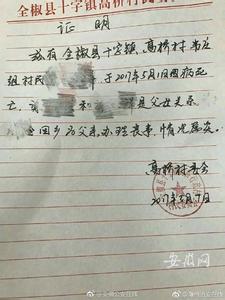 全椒县十字镇高桥村民
证 明
兹有全椒县十字镇高桥村
组村民 于2017年5月1日因病死
亡，该 和 是父母关系
回乡为父亲办理丧事，情况属实。
高桥村委会
2017年5月7日
安徽网
@滁州公安在线